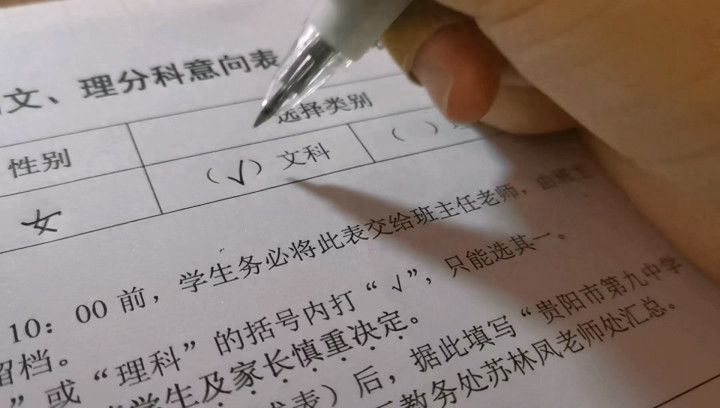 文、理分科意向表
性别 选择类别
女 (√) 文科 ( )
10：00 前，学生务必将此表交给班主任老师，由班主
留档。
”或“理科”的括号内打“√”，只能选其一。
学生及家长慎重决定。
表）后，据此填写“贵阳市第九中学
教务处苏林凤老师处汇总。